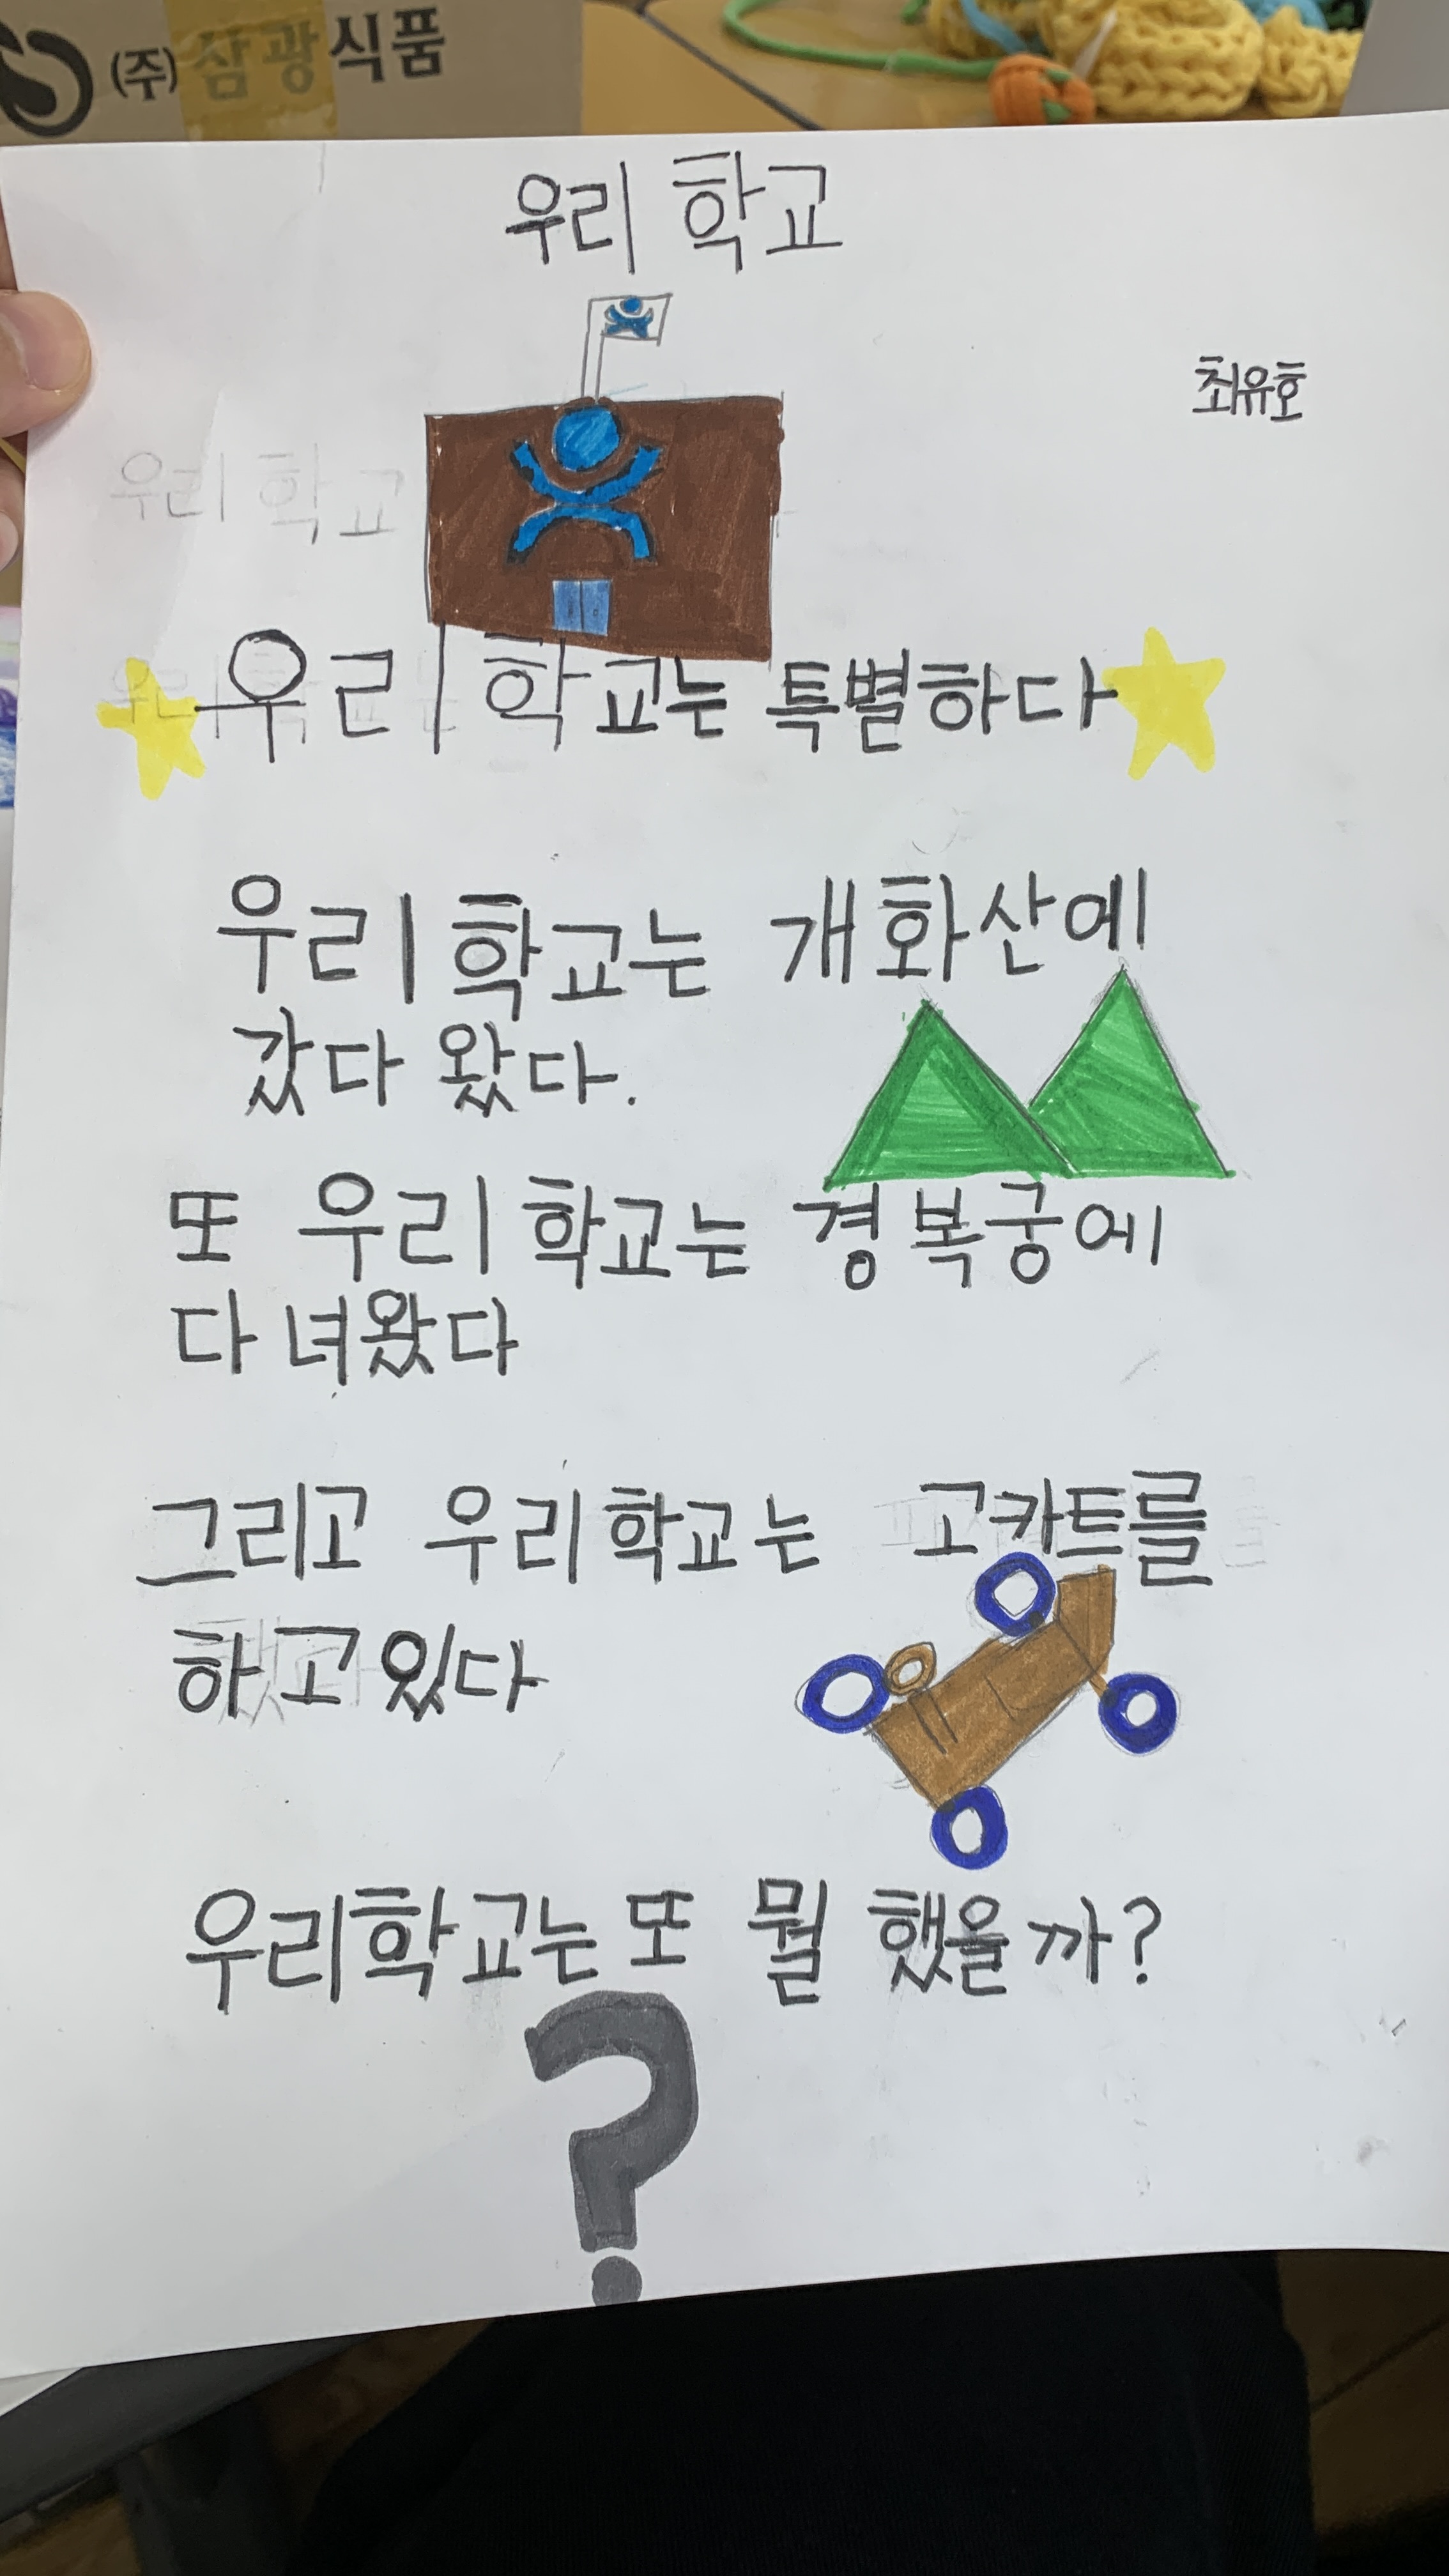 (주)삼광식품
우리 학교
최유호
우리 학교
우리 학교는 특별하다
우리 학교는 개화산에
갔다 왔다.
또 우리 학교는 경복궁에
다녀왔다
그리고 우리학교는 고카트를
하고있다
우리학교는 또 뭘 했을까?
?